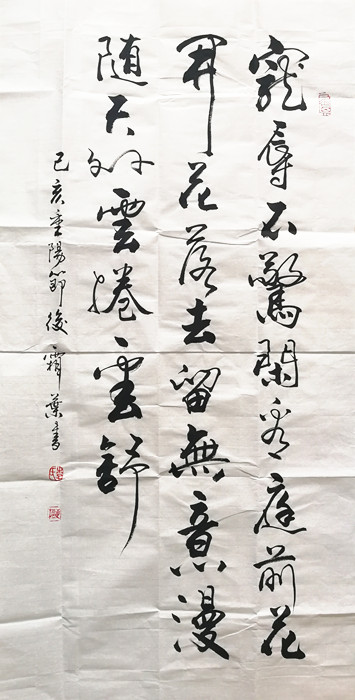 寵辱不驚閑看庭前花
開花落去留無意漫
随天外雲捲雲舒
己亥重陽節後霜葉書